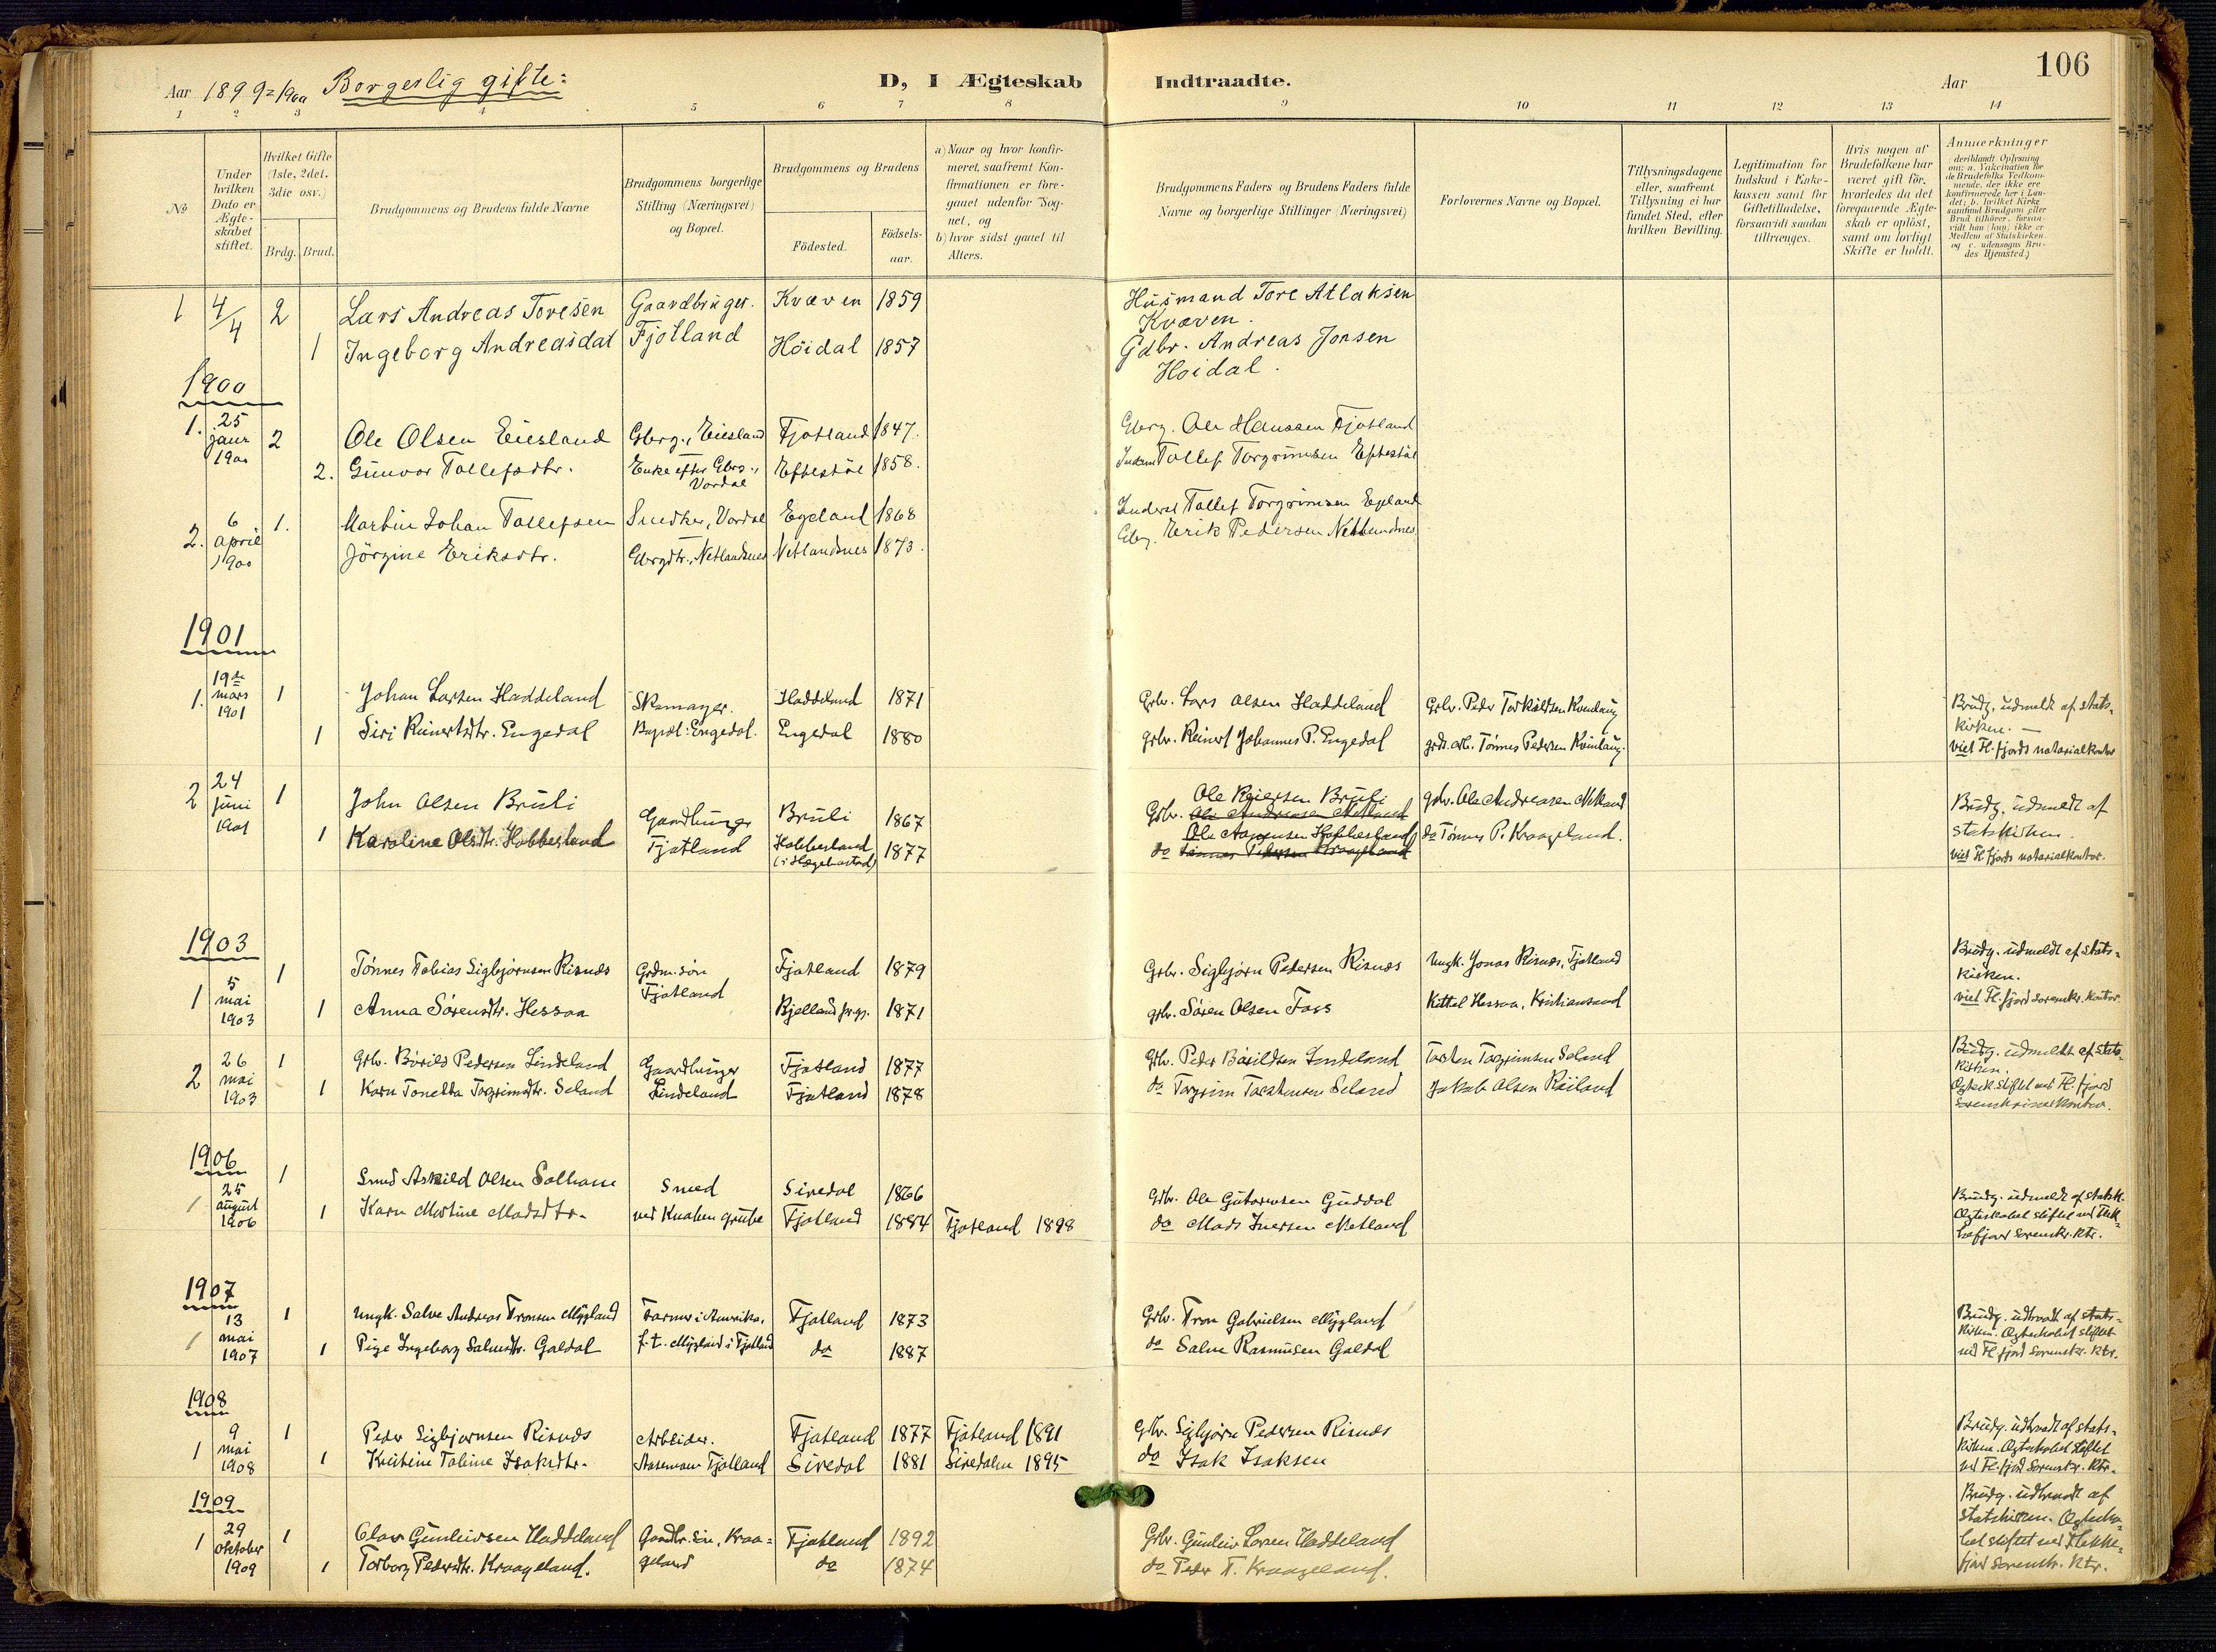 Aar 1899-1900 Borgerlig gifte:
D, I Ægteskab Indtraadte.
Aar
106
1 2 3 4 5 6 7 8 9 10 11 12 13 14
№
Under hvilken Dato er Ægte-skabet stiftet.
Hvilket Gifte (1ste, 2det, 3die osv.)
Brdg. Brud.
Brudgommens og Brudens fulde Navne
Brudgommens borgerlige Stilling (Næringsvei) og Bopæl.
Brudgommens og Brudens
Födested.
Födsels-aar.
a) Naar og hvor konfir-meret, saafremt Kon-firmationen er fore-gaaet udenfor Sog-net, og
b) hvor sidst gaaet til Alters.
Brudgommens Faders og Brudens Faders fulde Navne og borgerlige Stillinger (Næringsvei)
Forlovernes Navne og Bopæl.
Tillysningsdagene eller, saafremt Tillysning ei har fundet Sted, efter hvilken Bevilling.
Legitimation for Indskud i Enke-kassen samt for Giftetilladelse, forsaavidt saadan tiltrænges.
Hvis nogen af Brudefolkene har været gift för, hvorledes da det foregaaende Ægte-skab er oplöst, samt om lovligt Skifte er holdt.
Anmærkninger
(deriblandt Oplysning om: a. Vakcination for de Brudefolks Vedkom-mende, der ikke ere konfirmerede her i Lan-det; b. hvilket Kirke-samfund Brudgom eller Brud tilhörer, forsaa-vidt han (hun) ikke er Medlem af Statskirken, og c. udensogns Bru-des Hjemsted.)
1 4/4 2 Lars Andreas Toresen Gaardbruger. Kvæven 1859 Husmand Tore Atlaksen
Kvæven.
1 Ingeborg Andreasdat Fjotland Höidal 1857 Gdbr. Andreas Jonsen
Höidal.
1900
1. 25 Janr 1900 2 Ole Olsen Eiesland Gbrg., Eiesland Fjotland 1847. Gbrg. Ole Hanssen Fjotland
2. Gunvor Tollefsdtr. Enke efter Gbrg., Vordal Eftestöl 1858. Tollef Torgrimsen Eftestöl
2. 6 April 1900 1. Martin Johan Tollefsen Snedker, Vordal Egeland 1868 Inderst Tollef Torgrimsen Egeland
Jörgine Eriksdtr. Gbrgdtr., Netlandsnes Netlandsnes 1873. Gbrg. Erik Pedersen Netlandsnes
1901
1. 19de mars 1901 1 Johan Larsen Haddeland Skomager. Haddeland 1871 Grbr. Lars Olsen Haddeland Grbr. Peder Torkildsen Kvinlaug Brudg. udmeldt af stats-
kirken. —
1 Siri Reinertsdtr. Engedal Bopæl: Engedal. Engedal 1880 grbr. Reinert Johannes P. Engedal Tönnes Pedersen Kvinlaug. viet Fl.fjords notarialkontor
2 24 juni 1901 1 John Olsen Bruli Gaardbruger Bruli 1867 Grbr. Ole Reiersen Bruli grbr. Ole Andreasen Netland Brudg. udmeldt af
statskirken.
1 Karoline Olsdtr. Hobbesland Fjotland Hobbesland (i Hægebostad) 1877 do Ole Aanensen Hobbesland do Tönnes P. Kraageland. viet Fl.fjords notarialkontor.
1903
1 5 mai 1903 1 Tönnes Tobias Sigbjörnsen Risnæs Grdm. sön Fjotland 1879 Grbr. Sigbjörn Pedersen Risnæs Ungk. Jonas Risnæs, Fjotland Brudg. udmeldt af stats-
kirken.
1 Anna Sörensdtr. Hessaa Fjotland Bjelland prgj. 1871 grbr. Sören Olsen Foss Kittel Hessaa, Kristianssand viet Fl.fjord Sorenskr. Kontor.
2 26 mai 1903 1 Grbr. Börild Pedersen Lindeland Gaardbruger Fjotland 1877 Grbr. Peder Börildsen Lindeland Torsten Torgrimsen Seland Brudg. udmeldt af stats-
kirken.
1 Karn Tonetta Torgrimsdtr. Seland Lindeland Fjotland 1878 do Torgrim Torstensen Seland Jakob Olsen Röiland Ægtesk. stiftet ved Fl.fjord
Sorenskriverkontor.
1906
1 25 august 1906 1 Smed Askild Olsen Solhom Smed Siredal 1866 Grbr. Ole Gutormsen Guddal Brudg. udmeldt af statsk.
1 Karn Martine Madsdtr. ved Knaben grube Fjotland 1884 Fjotland 1898 do Mads Iversen Netland Ægteskabet stiftet ved Flek-
kefjord Sorenskr. Ktr.
1907
1 13 mai 1907 1 Ungk. Salve Andreas Tronsen Mygland Farmer i Amerika, Fjotland 1873 Grbr. Tron Gabrielsen Mygland Brudg. udtraadt af stats-
kirken. Ægteskabet stiftet
1 Pige Ingeborg Salvesdtr. Galdal f. t. Mygland i Fjotland do 1887 do Salve Rasmusen Galdal ved Fl.fjord Sorenskr. Ktr.
1908
1 9 mai 1908 1 Peder Sigbjörnsen Risnæs Arbeider. Fjotland 1877 Fjotland 1891 Grbr. Sigbjörn Pedersen Risnæs Brudg. udtraadt af stats-
kirken. Ægteskabet stiftet
1 Kristine Tobine Isaksdtr. Fjotland Siredal 1881 Siredalen 1895 do Isak Isaksen ved Fl.fjord Sorenskr. Ktr.
1909
1 29 oktober 1909 1 Olav Gunleivsen Haddeland Gaardbr. sön, Kraa- Fjotland 1892 Grbr. Gunleiv Larsen Haddeland Brudg. udtraadt af
statskirken. Ægteska-
1 Torborg Pedersdtr. Kraageland. geland do 1874 do Peder T. Kraageland. bet stiftet ved Flekke-
fjord Sorenskr. Ktr.